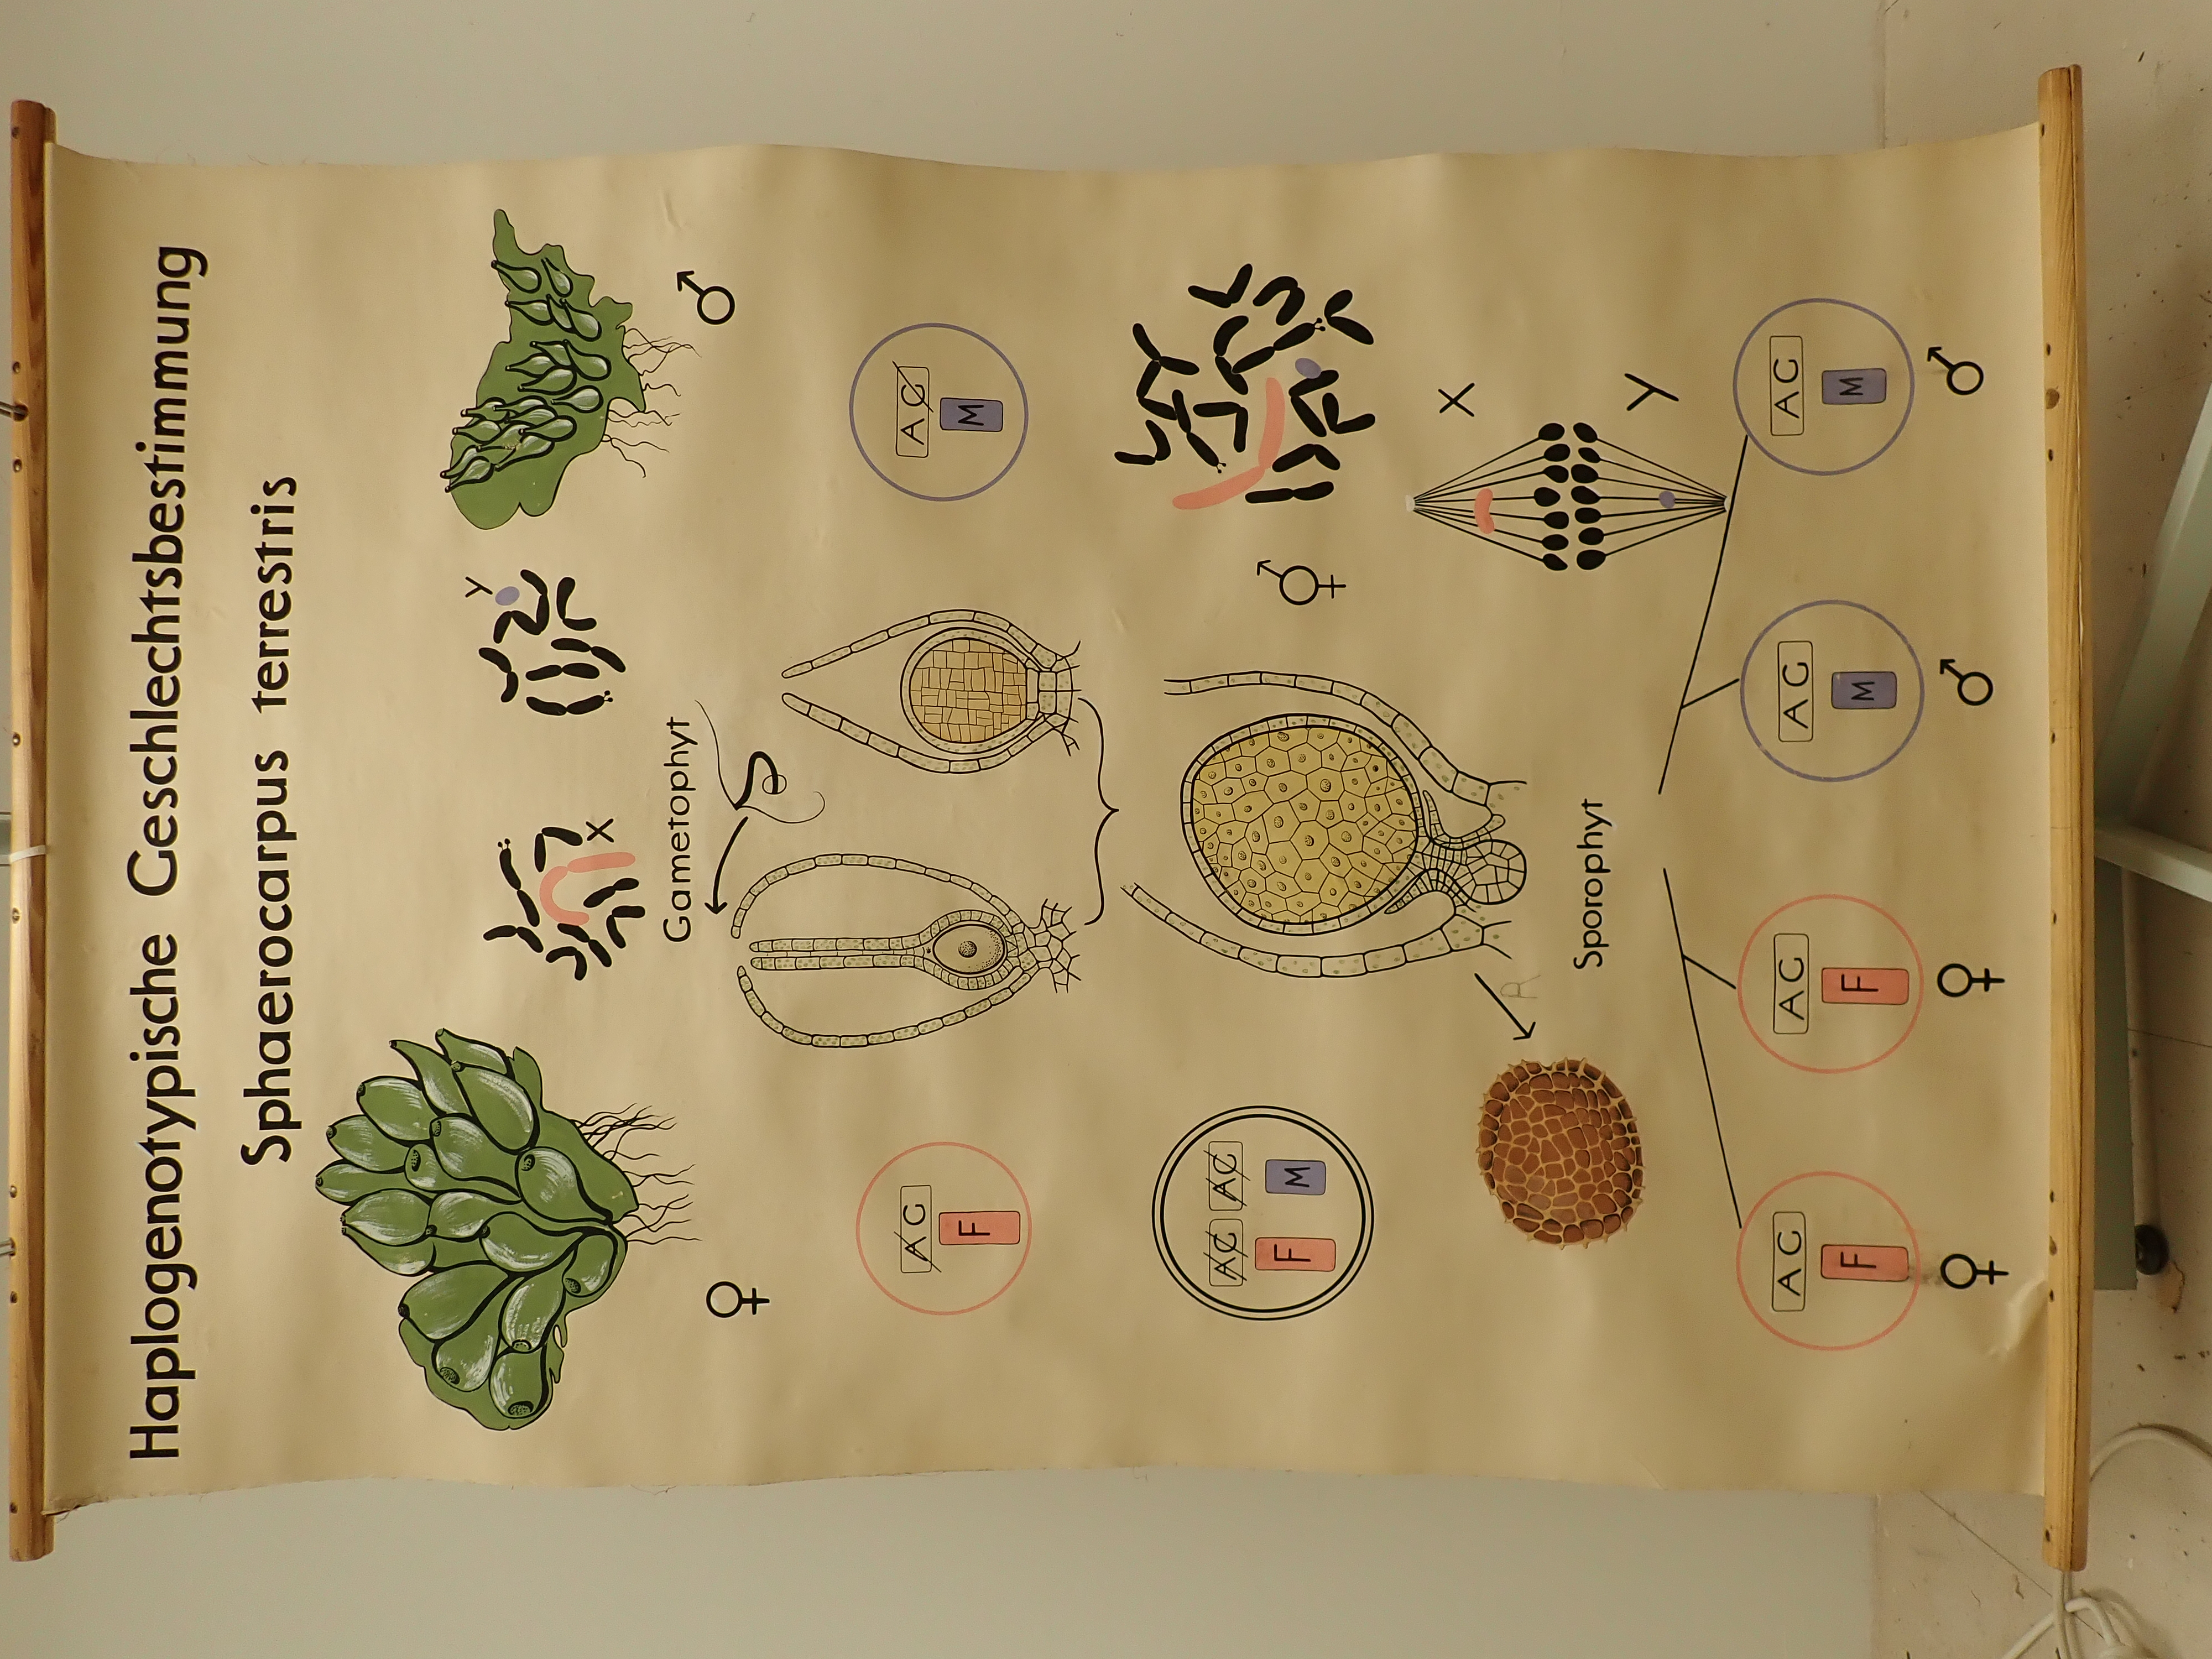 Haplogenotypische Geschlechtsbestimmung
Sphaerocarpus terrestris
Y
X
Gametophyt
♀ ♂
AC AC
F M
AC AC
F M
⚥
X
R
Sporophyt
Y
AC AC AC AC
F F M M
♀ ♀ ♂ ♂